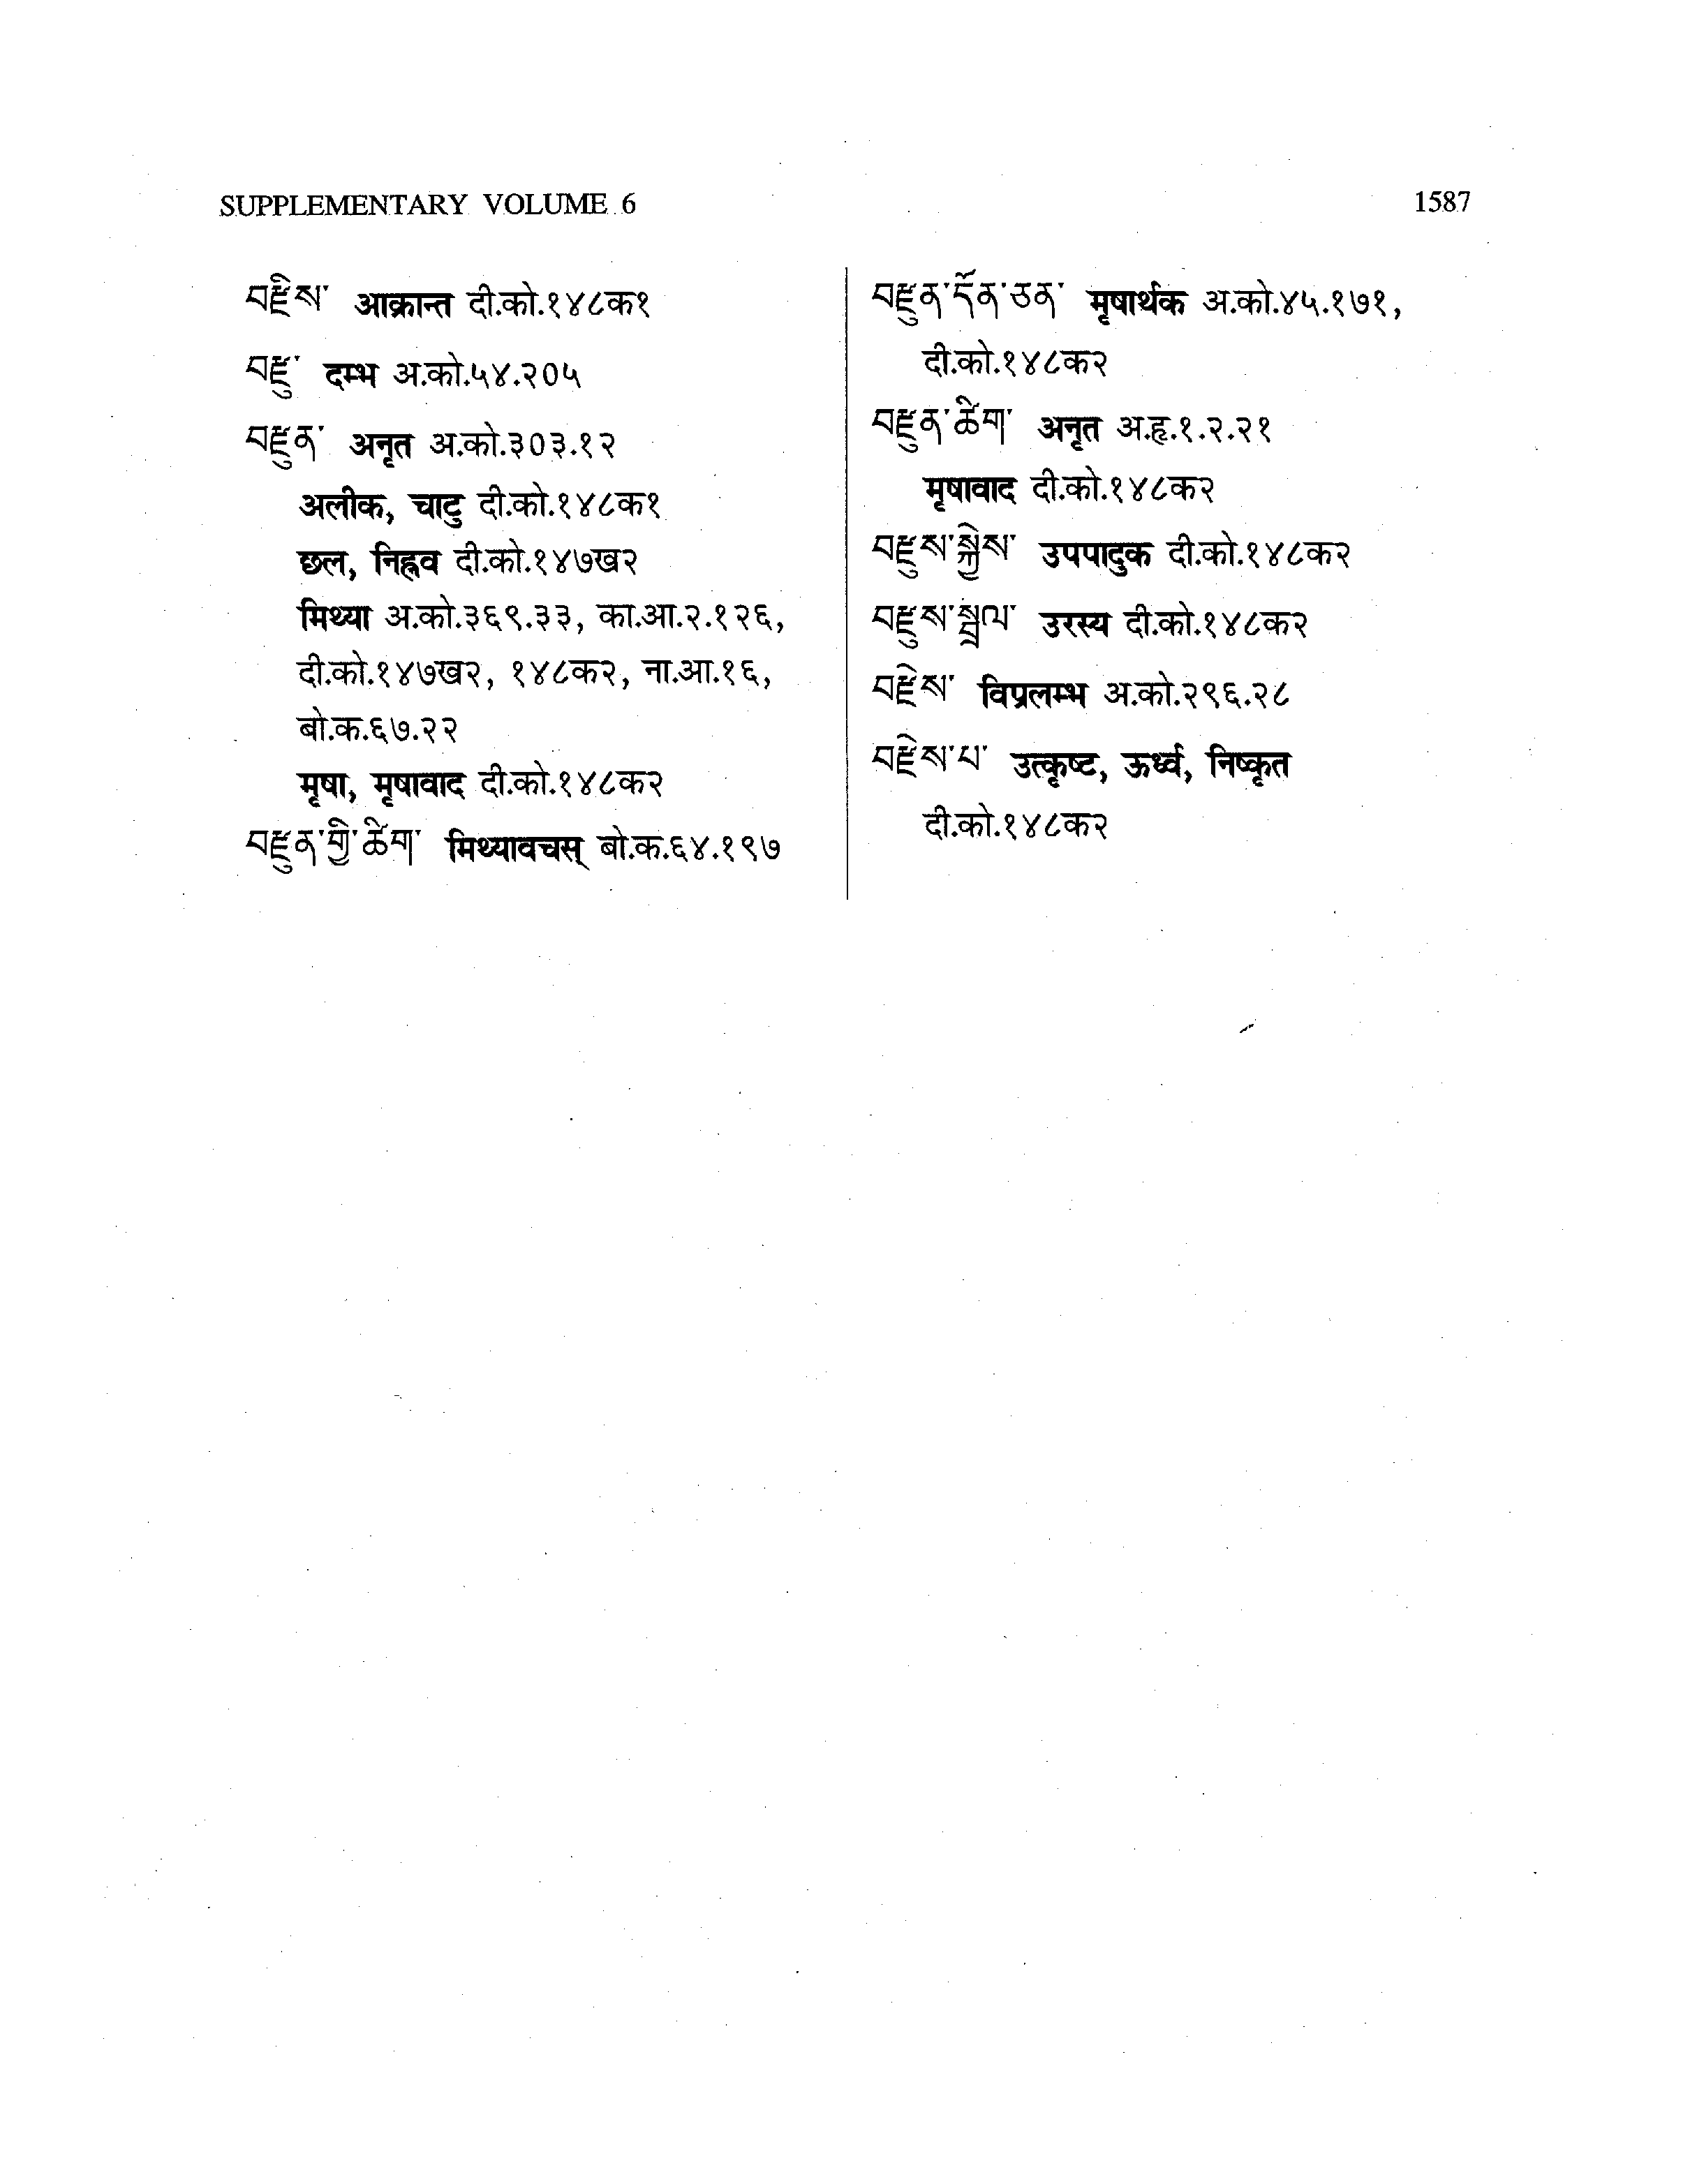 SUPPLEMENTARY VOLUME 6
1587
བརྫིས་ आक्रान्त दी.को.१४८क१
བརྫུ་ दम्भ अ.को.५४.२०५
བརྫུན་ अनृत अ.को.३०३.१२
अलीक, चाटु दी.को.१४८क१
छल, निह्नव दी.को.१४७ख२
मिथ्या अ.को.३६९.३३, का.आ.२.१२६,
दी.को.१४७ख२, १४८क२, ना.आ.१६,
बो.क.६७.२२
मृषा, मृषावाद दी.को.१४८क२
བརྫུན་གྱི་ཚིག་ मिथ्यावचस् बो.क.६४.१९७
བརྫུན་དོན་ཅན་ मृषार्थक अ.को.४५.१७१,
दी.को.१४८क२
བརྫུན་ཚིག་ अनृत अ.हृ.१.२.२१
मृषावाद दी.को.१४८क२
བརྫུས་སྐྱེས་ उपपादुक दी.को.१४८क२
བརྫུས་སྦྲུལ་ उरस्य दी.को.१४८क२
བརྫེས་ विप्रलम्भ अ.को.२९६.२८
བརྫེས་པ་ उत्कृष्ट, ऊर्ध्व, निष्कृत
दी.को.१४८क२